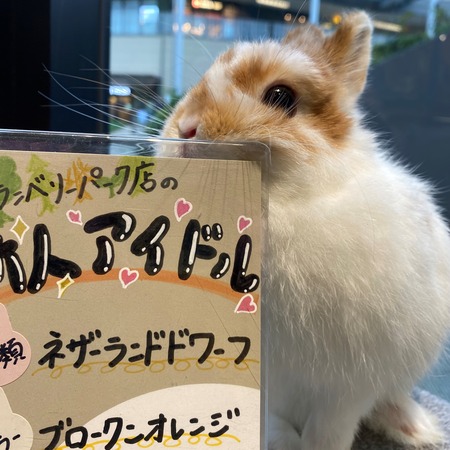 ランベリーパーク店の
アイドル
類 ネザーランドドワーフ
ブロークンオレンジ